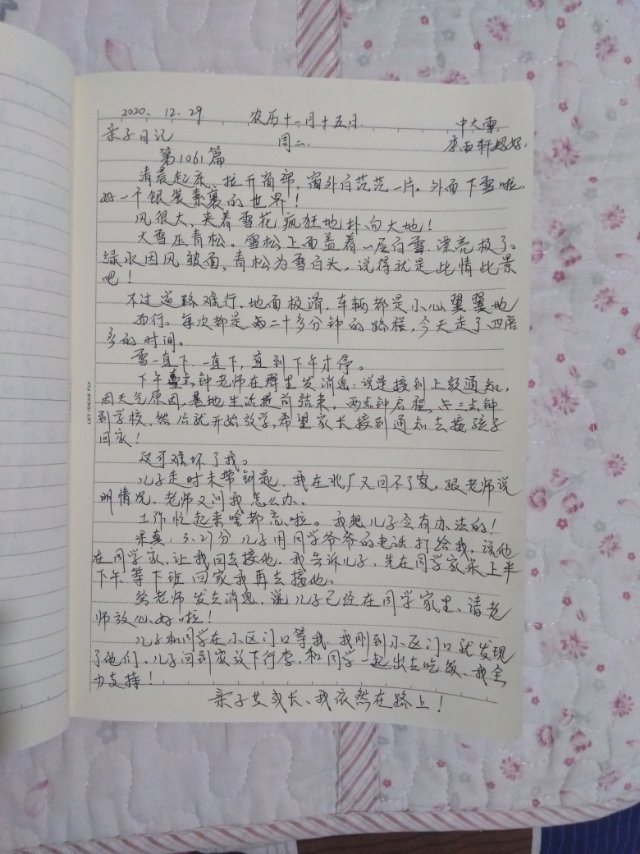 2020.12.29 农历十一月十五日 中大雪
亲子日记 周二 李雨轩妈妈
第1061篇
清晨起床,拉开窗帘,窗外白茫茫一片。外面下雪啦
好一个银装素裹的世界!
风很大,夹着雪花疯狂地扑向大地!
大雪压青松。雪松上面盖着一层白雪,漂亮极了。
绿水因风皱面,青松为雪白头,说得就是此情此景
吧!
不过道路难行,地面极滑,车辆都是小心翼翼地
而行。每次都是二十多分钟的路程,今天走了四倍
多的时间。
雪一直下,一直下,直到下午才停。
下午 点钟老师在群里发消息:说是接到上级通知,
因天气原因,基地生活提前结束。两点钟启程,三点钟
到学校,然后就开始放学,希望家长接到通知去接孩子
回家!
这可难坏了我。
儿子走时未带钥匙,我在北厂又回不了家,跟老师说
明情况,老师又问我怎么办。
工作忙起来啥都忘啦。我想儿子会有办法的!
果真:3:21分儿子用同学爷爷的电话打给我,说他
在同学家,让我回去接他。我告诉儿子,先在同学家呆上半
下午,等下班回家我再去接他。
给老师发去消息,说儿子已经在同学家里,请老
师放心好啦!
儿子和同学在小区门口等我,我刚到小区门口就发现
了他们。儿子回到家放下行李,和同学一起出去吃饭、我全
力支持!
亲子共成长、我依然在路上!